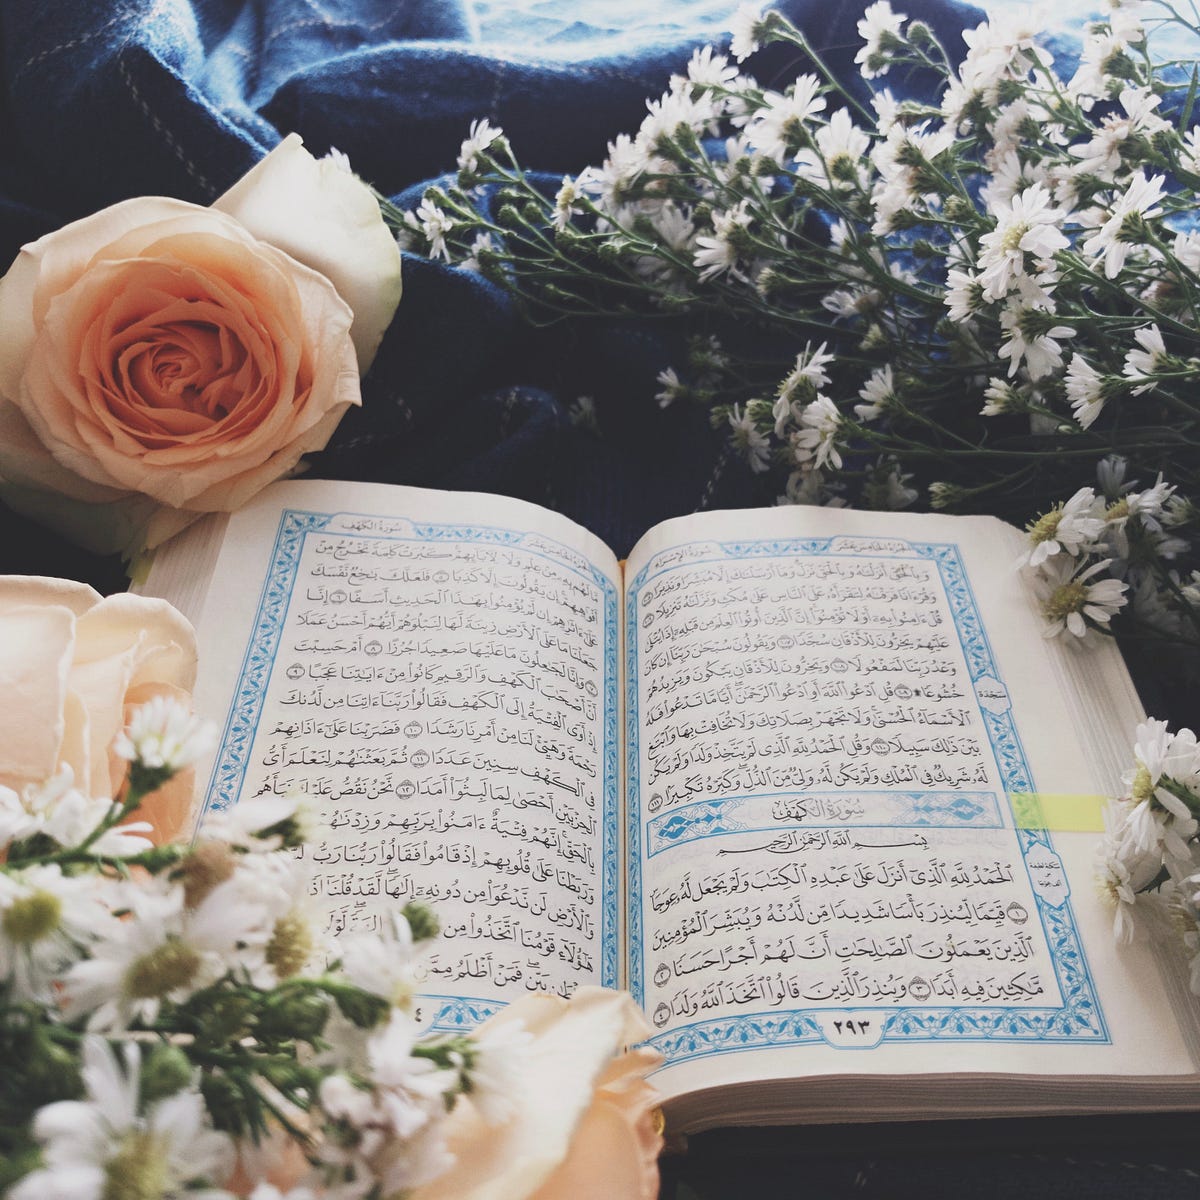 الجزء الخامس عشر سورة الإسراء
وَبِٱلْحَقِّ أَنزَلْنَٰهُ وَبِٱلْحَقِّ نَزَلَ وَمَآ أَرْسَلْنَٰكَ إِلَّا مُبَشِّرًا وَنَذِيرًا ١٠٥
وَقُرْءَانًا فَرَقْنَٰهُ لِتَقْرَأَهُۥ عَلَى ٱلنَّاسِ عَلَىٰ مُكْثٍ وَنَزَّلْنَٰهُ تَنزِيلًا ١٠٦
قُلْ ءَامِنُوا۟ بِهِۦٓ أَوْ لَا تُؤْمِنُوٓا۟ إِنَّ ٱلَّذِينَ أُوتُوا۟ ٱلْعِلْمَ مِن قَبْلِهِۦٓ إِذَا يُتْلَىٰ
عَلَيْهِمْ يَخِرُّونَ لِلْأَذْقَانِ سُجَّدًا ١٠٧ وَيَقُولُونَ سُبْحَٰنَ رَبِّنَآ إِن كَانَ
وَعْدُ رَبِّنَا لَمَفْعُولًا ١٠٨ وَيَخِرُّونَ لِلْأَذْقَانِ يَبْكُونَ وَيَزِيدُهُمْ
خُشُوعًا ۩ ١٠٩ قُلِ ٱدْعُوا۟ ٱللَّهَ أَوِ ٱدْعُوا۟ ٱلرَّحْمَٰنَ أَيًّا مَّا تَدْعُوا۟ فَلَهُ
سَجْدَة
ٱلْأَسْمَآءُ ٱلْحُسْنَىٰ وَلَا تَجْهَرْ بِصَلَاتِكَ وَلَا تُخَافِتْ بِهَا وَٱبْتَغِ
بَيْنَ ذَٰلِكَ سَبِيلًا ١١٠ وَقُلِ ٱلْحَمْدُ لِلَّهِ ٱلَّذِى لَمْ يَتَّخِذْ وَلَدًا وَلَمْ يَكُن
لَّهُۥ شَرِيكٌ فِى ٱلْمُلْكِ وَلَمْ يَكُن لَّهُۥ وَلِىٌّ مِّنَ ٱلذُّلِّ وَكَبِّرْهُ تَكْبِيرًۢا ١١١
سُورَةُ الكَهْفِ
بِسْمِ ٱللَّهِ ٱلرَّحْمَٰنِ ٱلرَّحِيمِ
ٱلْحَمْدُ لِلَّهِ ٱلَّذِىٓ أَنزَلَ عَلَىٰ عَبْدِهِ ٱلْكِتَٰبَ وَلَمْ يَجْعَل لَّهُۥ عِوَجَا
١ قَيِّمًا لِّيُنذِرَ بَأْسًا شَدِيدًا مِّن لَّدُنْهُ وَيُبَشِّرَ ٱلْمُؤْمِنِينَ
ٱلَّذِينَ يَعْمَلُونَ ٱلصَّٰلِحَٰتِ أَنَّ لَهُمْ أَجْرًا حَسَنًا ٢
مَّٰكِثِينَ فِيهِ أَبَدًا ٣ وَيُنذِرَ ٱلَّذِينَ قَالُوا۟ ٱتَّخَذَ ٱللَّهُ وَلَدًا ٤
٢٩٣
الجزء الخامس عشر سورة الكهف
مَّا لَهُم بِهِۦ مِنْ عِلْمٍ وَلَا لِـَٔابَآئِهِمْ كَبُرَتْ كَلِمَةً تَخْرُجُ مِنْ
أَفْوَٰهِهِمْ إِن يَقُولُونَ إِلَّا كَذِبًا ٥ فَلَعَلَّكَ بَٰخِعٌ نَّفْسَكَ
عَلَىٰٓ ءَاثَٰرِهِمْ إِن لَّمْ يُؤْمِنُوا۟ بِهَٰذَا ٱلْحَدِيثِ أَسَفًا ٦ إِنَّا
جَعَلْنَا مَا عَلَى ٱلْأَرْضِ زِينَةً لَّهَا لِنَبْلُوَهُمْ أَيُّهُمْ أَحْسَنُ عَمَلًا
٧ وَإِنَّا لَجَٰعِلُونَ مَا عَلَيْهَا صَعِيدًا جُرُزًا ٨ أَمْ حَسِبْتَ
أَنَّ أَصْحَٰبَ ٱلْكَهْفِ وَٱلرَّقِيمِ كَانُوا۟ مِنْ ءَايَٰتِنَا عَجَبًا ٩
إِذْ أَوَى ٱلْفِتْيَةُ إِلَى ٱلْكَهْفِ فَقَالُوا۟ رَبَّنَآ ءَاتِنَا مِن لَّدُنكَ
رَحْمَةً وَهَيِّئْ لَنَا مِنْ أَمْرِنَا رَشَدًا ١٠ فَضَرَبْنَا عَلَىٰٓ ءَاذَانِهِمْ
فِى ٱلْكَهْفِ سِنِينَ عَدَدًا ١١ ثُمَّ بَعَثْنَٰهُمْ لِنَعْلَمَ أَىُّ
ٱلْحِزْبَيْنِ أَحْصَىٰ لِمَا لَبِثُوٓا۟ أَمَدًا ١٢ نَّحْنُ نَقُصُّ عَلَيْكَ نَبَأَهُم
بِٱلْحَقِّ إِنَّهُمْ فِتْيَةٌ ءَامَنُوا۟ بِرَبِّهِمْ وَزِدْنَٰهُمْ
وَرَبَطْنَا عَلَىٰ قُلُوبِهِمْ إِذْ قَامُوا۟ فَقَالُوا۟ رَبُّنَا رَبُّ
وَٱلْأَرْضِ لَن نَّدْعُوَا۟ مِن دُونِهِۦٓ إِلَٰهًا لَّقَدْ قُلْنَآ إِذًا
هَٰٓؤُلَآءِ قَوْمُنَا ٱتَّخَذُوا۟ مِن ءَالِهَةً لَّوْلَا
بَيِّنٍ فَمَنْ أَظْلَمُ مِمَّنِ